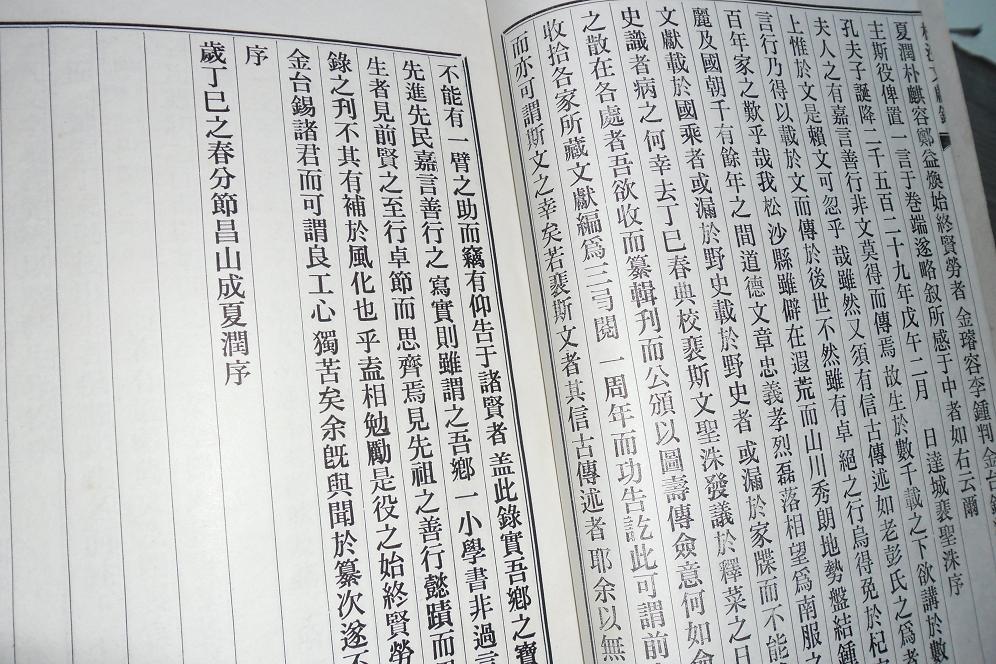 夏潤朴麒容鄭益煥始終賢勞者 金璿容李鍾判金台錫
主斯役俾置一言于卷端遂略敘所感于中者如右云爾
孔夫子誕降二千五百二十九年戊午二月 日達城裵聖洙序
夫人之有嘉言善行非文莫得而傳焉故生於數千載之下欲講於數
上惟於文是賴文可忽乎哉雖然又須有信古傳述如老彭氏之爲者
言行乃得以載於文而傳於後世不然雖有卓絕之行烏得免於杞
百年家之歎乎哉我松沙縣雖僻在遐荒而山川秀朗地勢盤結鍾
麗及國朝千有餘年之間道德文章忠義孝烈磊落相望爲南服之
文獻載於國乘者或漏於野史載於野史者或漏於家牒而不能
史識者病之何幸去丁巳春典校裵斯文聖洙發議於釋菜之日
之散在各處者吾欲收而纂輯刊而公頒以圖壽傳僉意何如僉
收拾各家所藏文獻編爲三弓閱一周年而功告訖此可謂前
而亦可謂斯文之幸矣若裵斯文者其信古傳述者耶余以無
不能有一臂之助而竊有仰告于諸賢者盖此錄實吾鄉之寶
先進先民嘉言善行之寫實則雖謂之吾鄉一小學書非過言
生者見前賢之至行卓節而思齊焉見先祖之善行懿蹟而
錄之刋不其有補於風化也乎盍相勉勵是役之始終賢勞
金台錫諸君而可謂良工心獨苦矣余旣與聞於纂次遂不
序
歲丁巳之春分節昌山成夏潤序